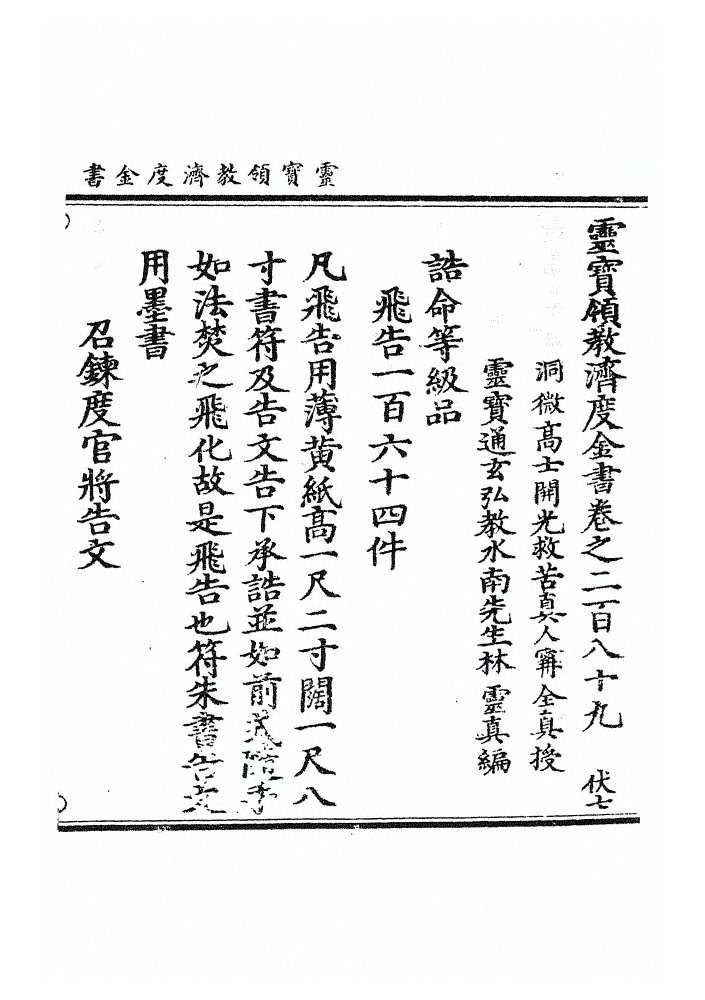 靈寶領教濟度金書
靈寶領教濟度金書卷之二百八十九 伏七
洞微高士開光救苦真人甯全真授
靈寶通玄弘教水南先生林靈真編
誥命等級品
飛告一百六十四件
凡飛告用薄黄紙高一尺二寸闊一尺八
寸書符及告文告下承誥並如前
如法焚之飛化故是飛告也符朱書告文
用墨書
召鍊度官將告文